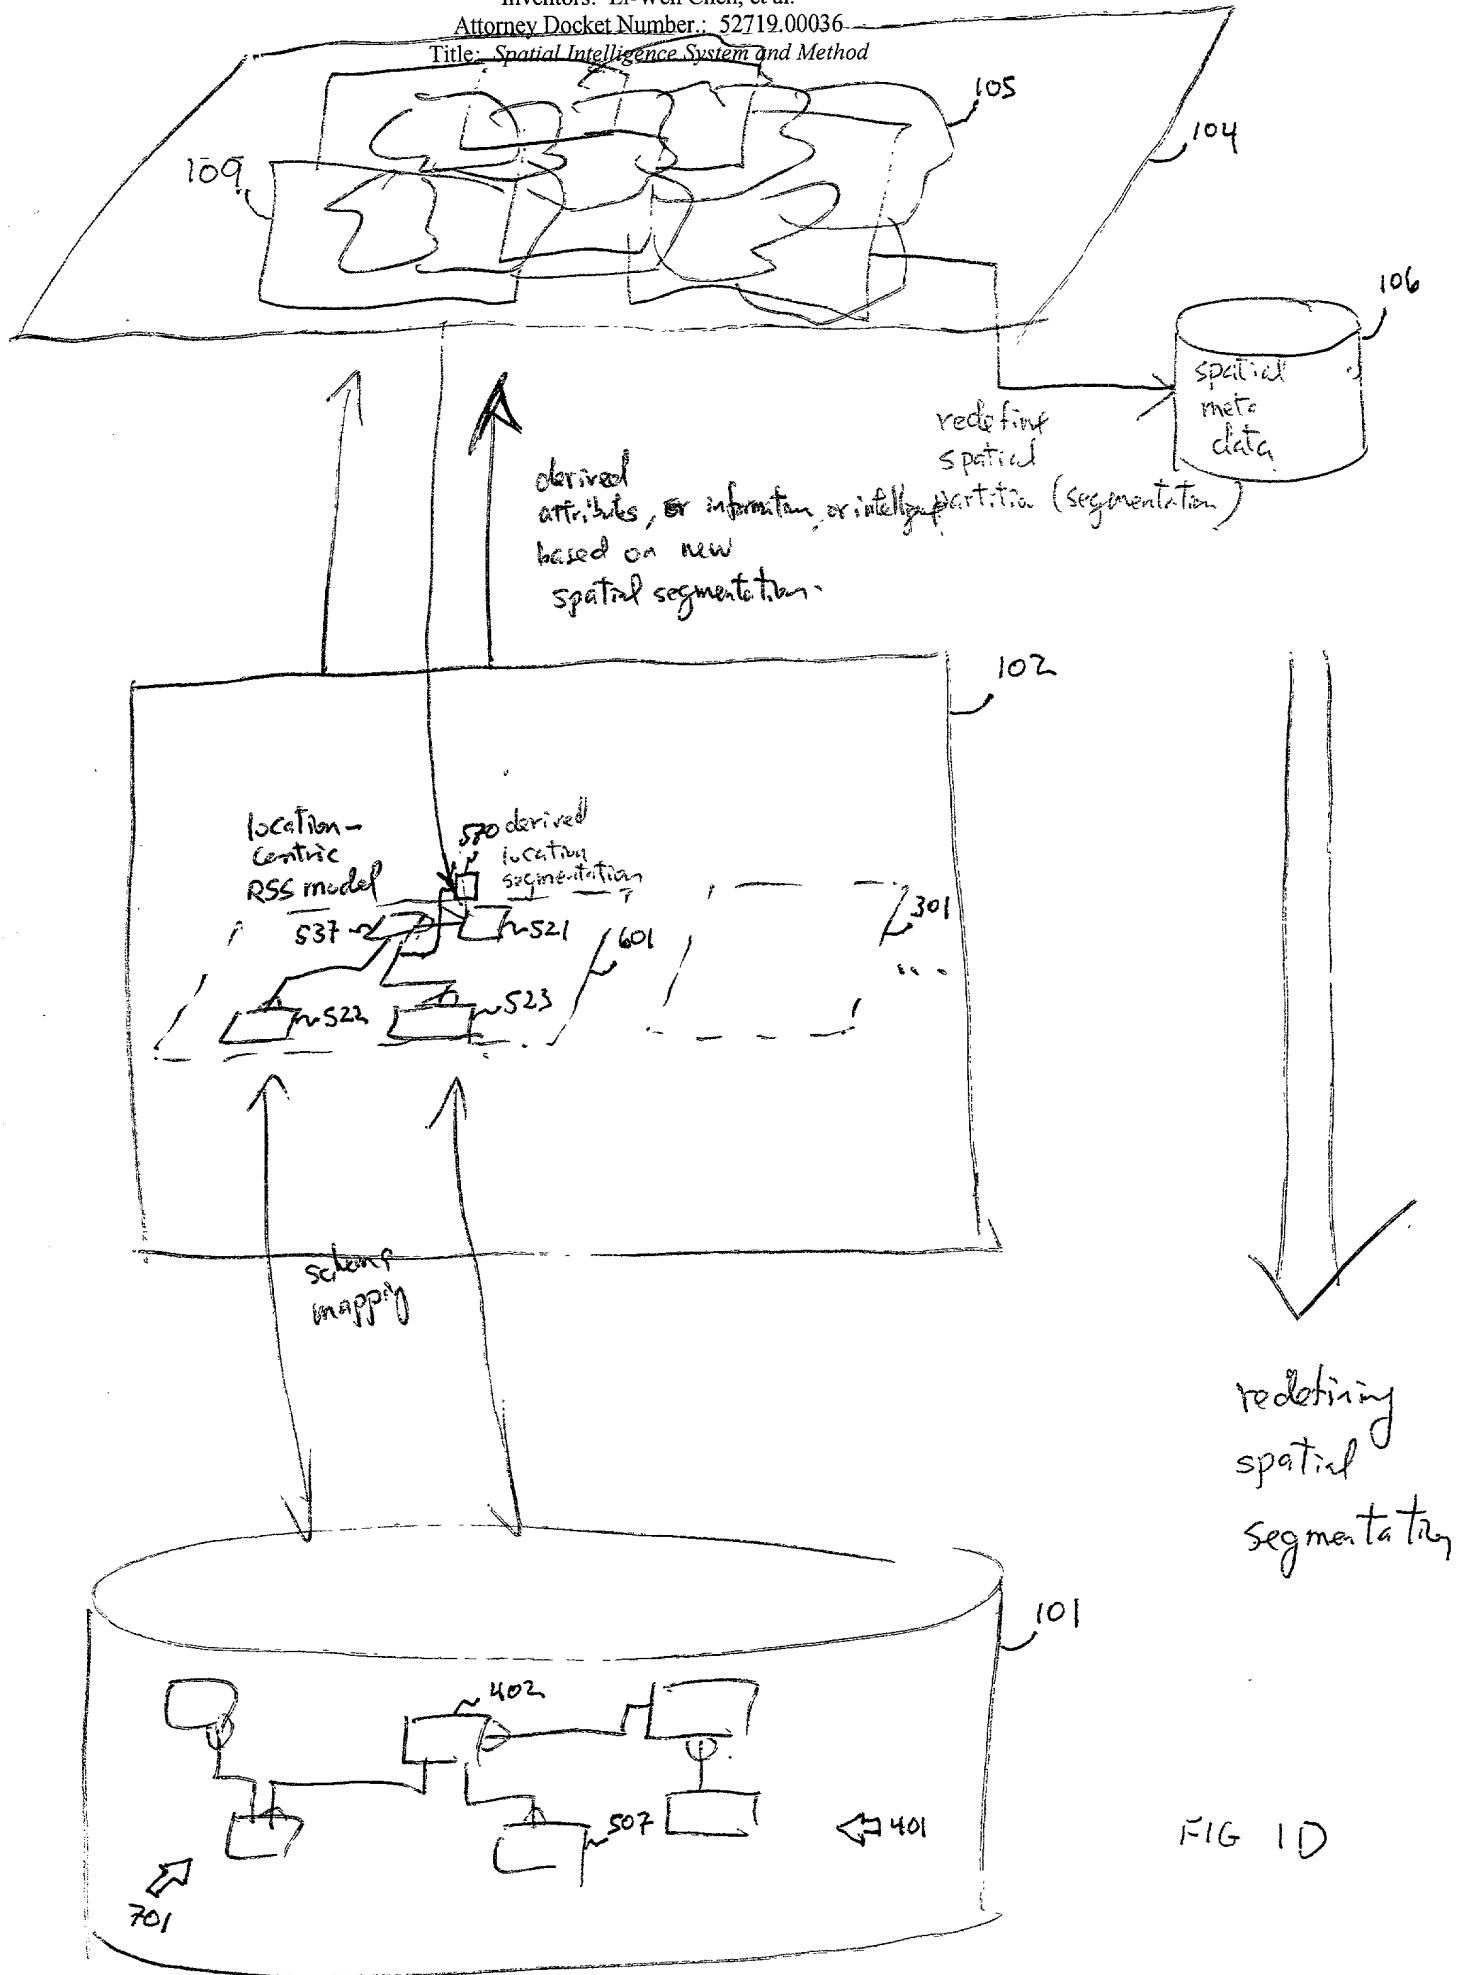 Inventors: Li-Wen Chen, et al.
Attorney Docket Number.: 52719.00036
Title: Spatial Intelligence System and Method
105
104
109
106
spatial
meta
data
redefine
spatial
partition (segmentation)
derived
attributes, or information, or
based on new
spatial segmentation.
102
location-
centric
RSS model
570 derived
location
segmentation
537
521
601
301
522
523
schema
mapping
redefining
spatial
segmentation
101
402
507
401
701
FIG 1D